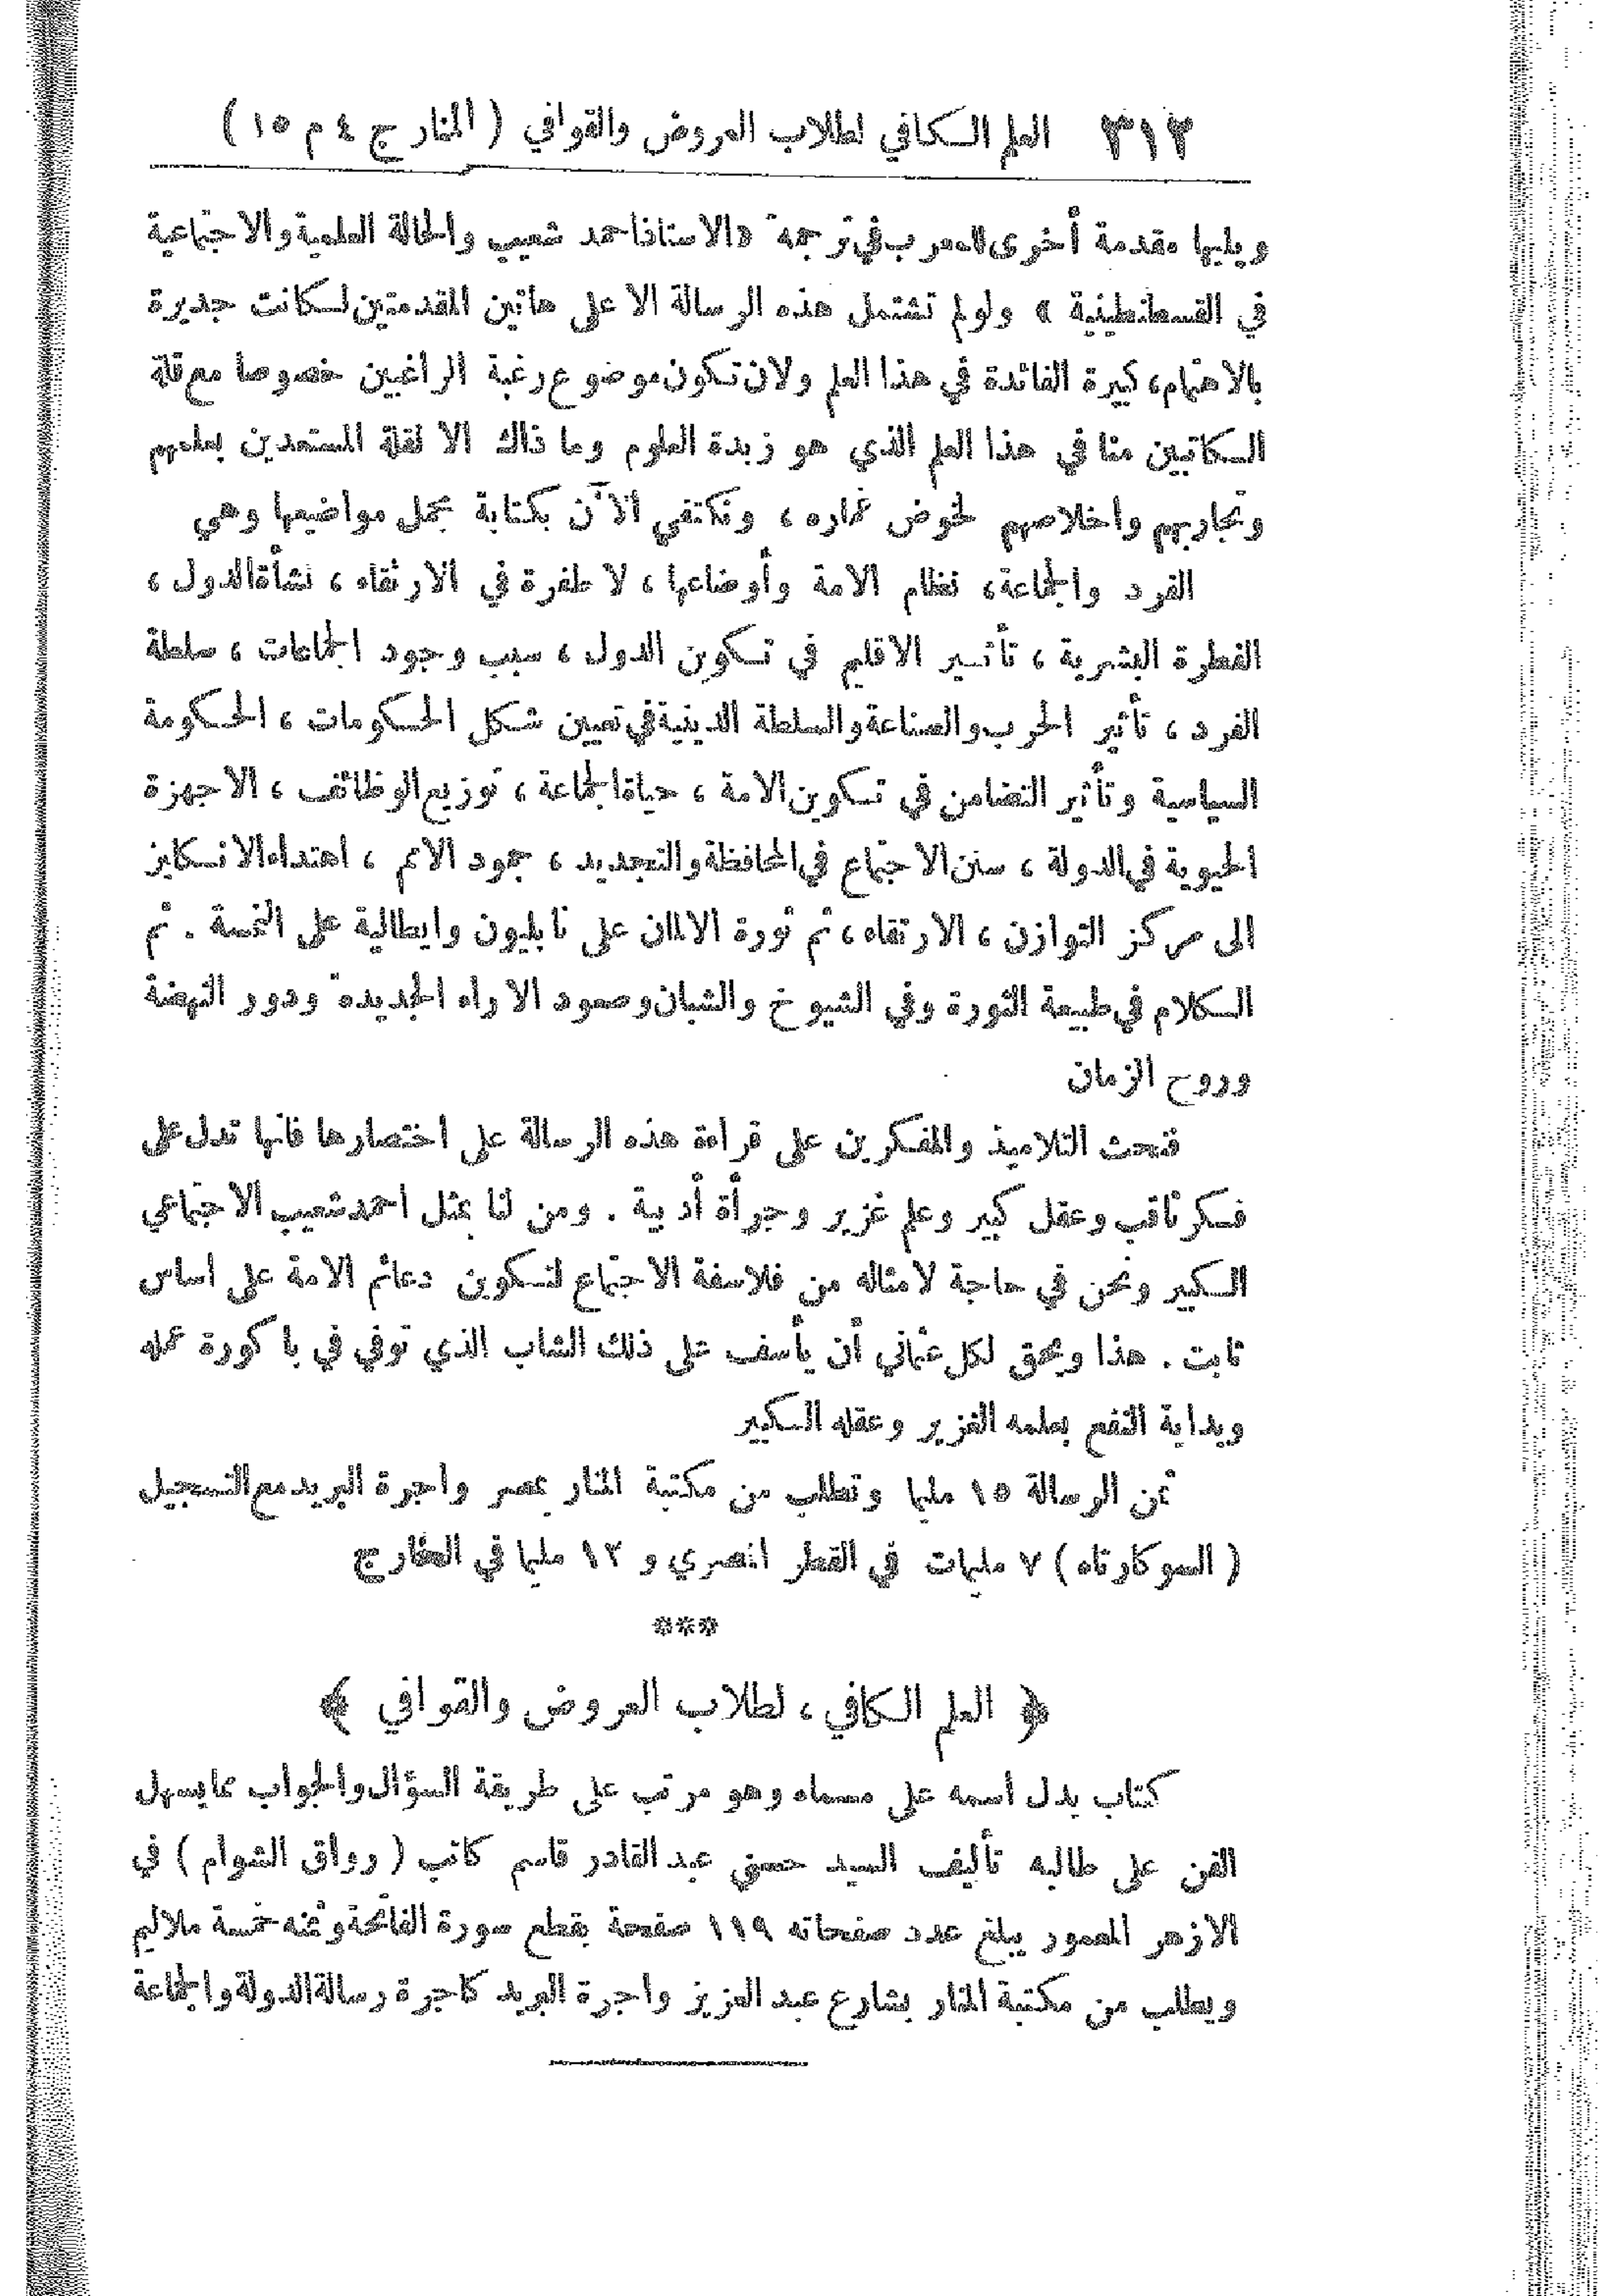 ٣١٢ العلم الكافي لطلاب العروض والقوافي ( المنار ج ٤ م ١٥ )
ويليها مقدمة أخرى للمعرب في ترجمة « الاستاذ احمد شعيب والحالة العلمية والاجتماعية
في القسطنطينية » ولو لم تشتمل هذه الرسالة الا على هاتين المقدمتين لكانت جديرة
بالاهتمام، كبيرة الفائدة في هذا العلم ولان تكون موضوع رغبة الراغبين خصوصا مع قلة
الكاتبين منا في هذا العلم الذي هو زبدة العلوم وما ذاك الا لقلة المستعدين بعلمهم
وتجاربهم واخلاصهم لخوض غماره ، ونكتفي الآن بكتابة مجمل مواضيعها وهي
الفرد والجماعة، نظام الامة وأوضاعها ، لا طفرة في الارتقاء ، نشأة الدول ،
الفطرة البشرية ، تأثير الاقليم في تكوين الدول ، سبب وجود الجماعات ، سلطة
الفرد ، تأثير الحرب والصناعة والسلطة الدينية في تعيين شكل الحكومات ، الحكومة
السياسية وتأثير التضامن في تكوين الامة ، حياة الجماعة ، توزيع الوظائف ، الاجهزة
الحيوية في الدولة ، سنن الاجتماع في المحافظة والتجديد ، جمود الامم ، اهتداء الانكليز
الى مركز التوازن ، الارتقاء ، ثم ثورة الالمان على نابليون وايطالية على النمسة . ثم
الكلام في طبيعة الثورة وفي الشيوخ والشبان وصعود الاراء الجديدة ودور النهضة
وروح الزمان
فنحث التلاميذ والمفكرين على قراءة هذه الرسالة على اختصارها فانها تدل على
فكر ثاقب وعقل كبير وعلم غزير وجرأة أدبية . ومن لنا بمثل احمد شعيب الاجتماعي
الكبير ونحن في حاجة لامثاله من فلاسفة الاجتماع لتكوين دعائم الامة على اساس
ثابت . هذا ويحق لكل عثماني أن يأسف على ذلك الشاب الذي توفي في باكورة عمله
وبداية النفع بعلمه الغزير وعقله الكبير
ثمن الرسالة ١٥ مليما وتطلب من مكتبة المنار بمصر واجرة البريد مع التسجيل
( السوكارتاه ) ٧ مليمات في القطر المصري و ١٢ مليما في الخارج
***
﴿ العلم الكافي ، لطلاب العروض والقوافي ﴾
كتاب يدل أسمه على مسماه وهو مرتب على طريقة السؤال والجواب مما يسهل
الفن على طالبه تأليف السيد حسني عبد القادر قاسم كاتب ( رواق الشوام ) في
الازهر المعمور يبلغ عدد صفحاته ١١٩ صفحة بقطع سورة الفاتحة وثمنه خمسة ملاليم
ويطلب من مكتبة المنار بشارع عبد العزيز واجرة البريد كاجرة رسالة الدولة والجماعة